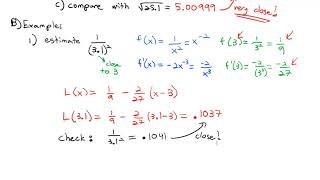 c) compare with √25.1 = 5.00999 very close!
B) Examples
1) estimate 1/(3.1)² f(x) = 1/x² = x⁻² f(3) = 1/3² = 1/9
close to 3 f'(x) = -2x⁻³ = -2/x³ f'(3) = -2/(3³) = -2/27
L(x) = 1/9 - 2/27 (x-3)
L(3.1) = 1/9 - 2/27 (3.1-3) = .1037
check: 1/3.1² = .1041 close!